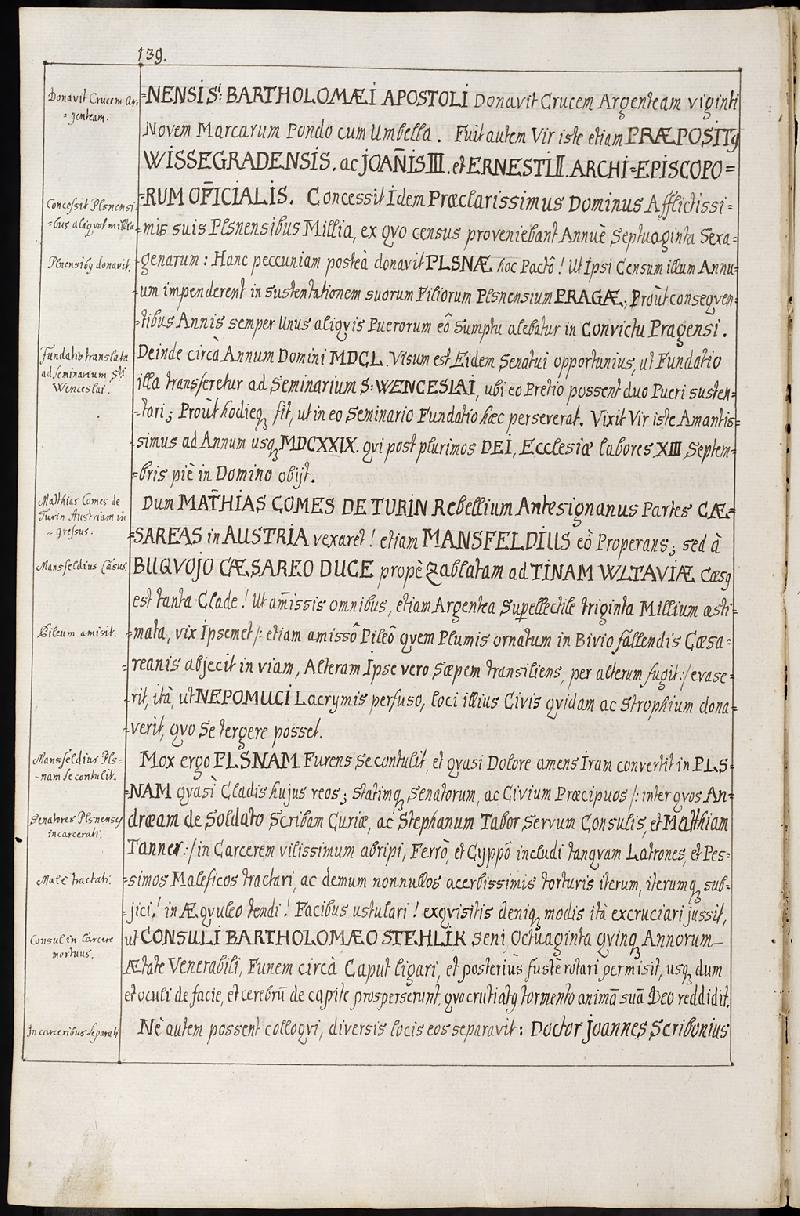 139.
Donavit Crucem Ar-
genteam.
=NENSIS S: BARTHOLOMÆI APOSTOLI Donavit Crucem Argenteam viginti
Novem Marcarum Pondo cum Umbella. Fuit autem Vir iste etiam PRÆPOSITꝰ
WISSEGRADENSIS. ac JOAN̄IS III. et ERNESTI II. ARCHI=EPISCOPO=
Concessit Plsnensi-
bus aliquot millia
=RUM OF̄ICIALIS. Concessit Idem Præclarissimus Dominus Afflictissi=
=mis suis Plsnensibus Millia, ex qvo census proveniebant Annuè Septuaginta Sexa=
Plsnensibꝰ donavit.
=genarum: Hanc peccuniam posteà donavit PLSNÆ hoc Pacto! Ut Ipsi Censum illum Annu=
um impenderent in sustentationem suorum Filiorum Plsnensium PRAGÆ; Proùt conseqven=
=tibus Annis semper Unus aliqvis Puerorum eô Sumptu alebatur in Convictu Pragensi.
Fundatio translata
ad Seminarium Sti
Wenceslai.
Deinde circà Annum Domini MDCL. Visum est Eidem Senatui opportunius, ut Fundatio
illa transferetur ad Seminarium S: WENCESLAI, ubi eo Pretio possent duo Pueri susten=
=tari; Proùt hodieq3 fit, ut in eo Seminario Fundatio hæc perseverat. Vixit Vir iste Amantis=
simus ad Annum usq3 MDCXXIX. qvi post plurimos DEI, Ecclesiæ labores XIII Septem=
=bris piè in Domino obijt.
Matthias Comes de
Turin Austriam in
=gressus.
Dum MATTHIAS COMES DE TURIN Rebellium Antesignanus Partes CÆ=
=SAREAS in AUSTRIA vexaret! etiam MANSFELDIUS eô Properans; sed à
Mansfeldius Cæsus
BUQVOJO CÆSAREO DUCE propè Zablatam ad TINAM WLTAVIÆ Cæsꝰ
est tanta Clade! Ut amissis omnibus, etiam Argentea Supellectile triginta Millium æsti=
Pileum amisit.
=mata, vix Ipsemet /: etiam amissô Pileô qvem Plumis ornatum in Bivio fallendis Cæsa=
=reanis abjecit in viam, Alteram Ipse vero Sæpem transiliens, per alterum fugit :/ evase=
=rit, ità, ut NEPOMUCI Lacrymis perfuso, loci illius Civis qvidam ac Strophium dona=
=verit, qvo Se tergere posset.
Mansfeldius Pls-
=nam se contulit.
Mox ergo PLSNAM Furens Se contulit, et qvasi Dolore amens Iram convertit in PLS=
=NAM qvasi Cladis hujus reos; Statimq3 Senatorum, ac Civium Præcipuos /: inter qvos An=
Senatores Plsnenses
incarcerati.
dræam de Soldato Scribam Curiæ, ac Stephanum Tabor Servum Consulis, et Matthiam
Tanner :/ in Carcerem vilissimum abripi, Ferro, et Cyppô includi tanqvam Latrones, et Pes=
Malè tractati.
=simos Maleficos tractari, ac demum nonnullos acerbissimis torturis iterum, iterumq3 sub=
=jici! in Æqvuleo tendi! Facibus ustulari! exqvisitis deniq3 modis ità excruciari jussit,
Consul in Carcere
mortuus.
ut CONSULI BARTHOLOMÆO STEHLIK Seni Octuaginta qvinq3 Annorum
Ætate Venerabili, Funem circà Caput ligari, et posteriùs fuste rotari permisit, usq3 dum
et oculi de facie, et cerebrū de capite prosperserunt, qvo cruciatꝰ tormento animā suā Deo reddidit.
In carceribus separati
Nè autem possent colloqvi, diversis locis eos separavit: Doctor Joannes Scribonius